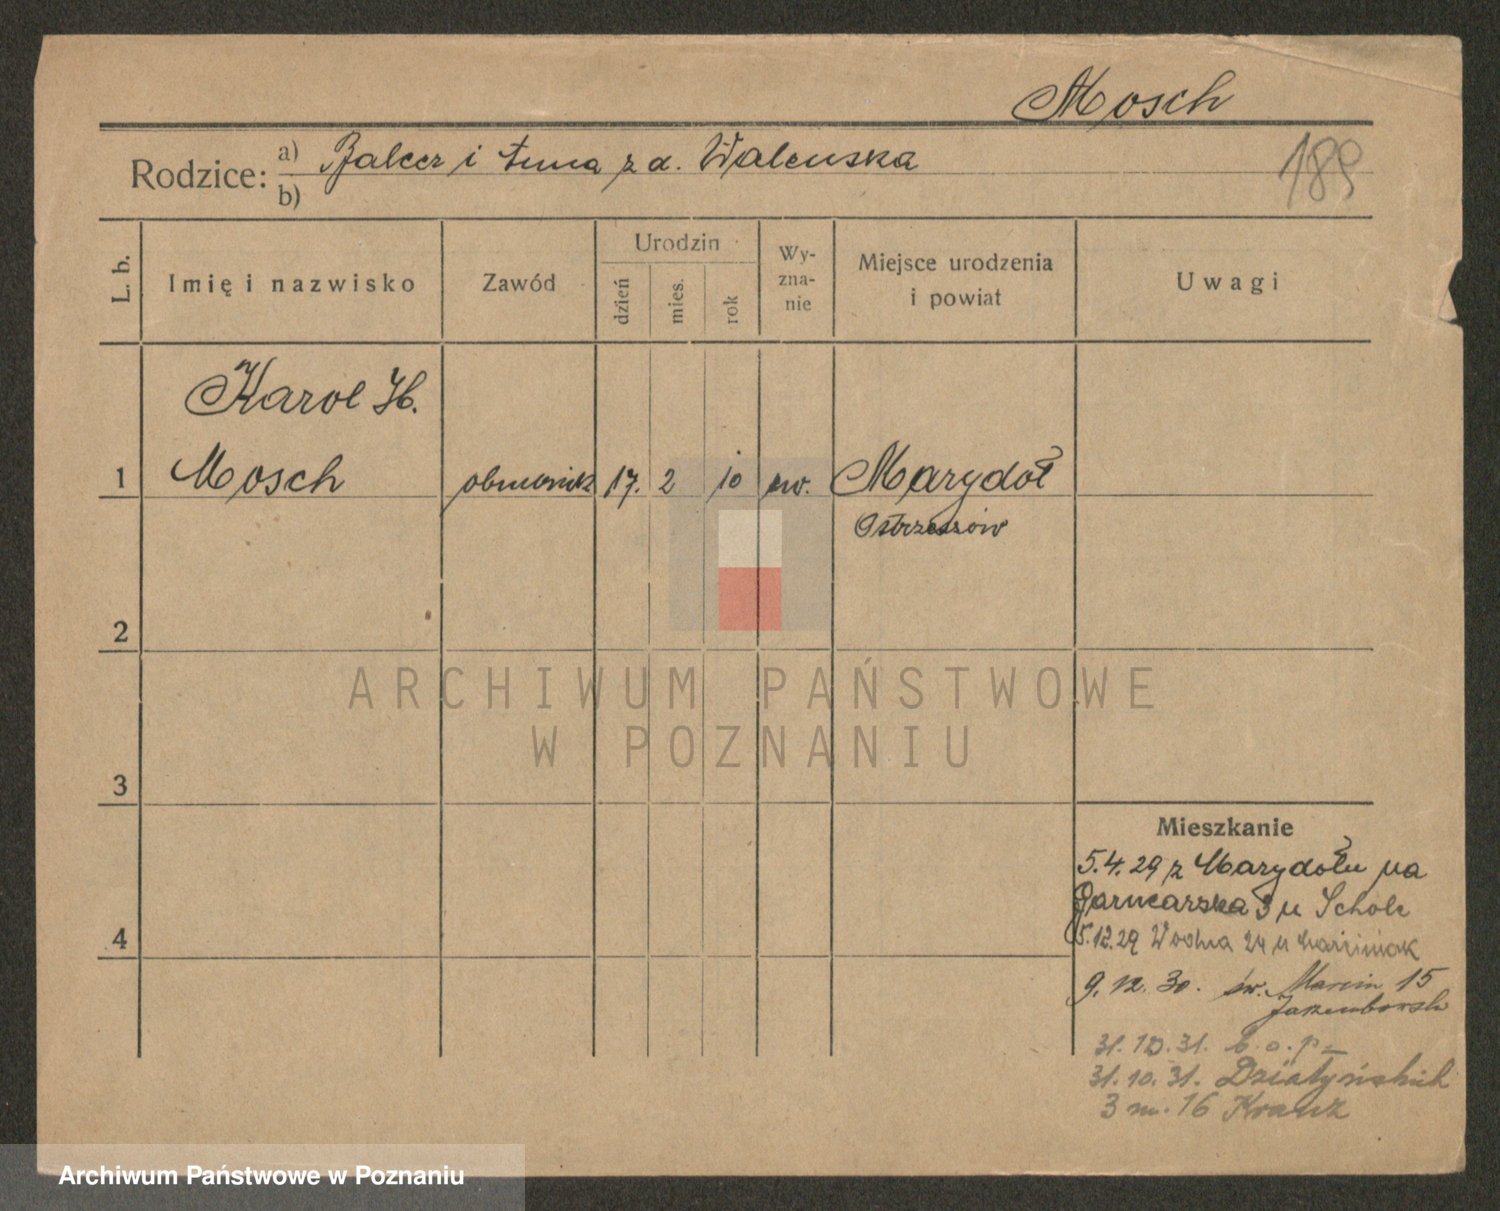 Mosch
Rodzice: a) Balcer i Anna z d. Walenska
b)
189
L. b.
Imię i nazwisko
Zawód
Urodzin
dzień
mies.
rok
Wy-
zna-
nie
Miejsce urodzenia
i powiat
Uwagi
Karol H.
1 Mosch 17. 2 10 ew. Marydoł
Ostrzeszów
2
3
4
ARCHIWUM PAŃSTWOWE
W POZNANIU
Mieszkanie
5.4.29 z Marydołu na
Garncarska 3 u Scholc
5.12.29 Wodna 24 u Marciniak
9.12.30. św. Marcin 15
31.10.31. b.o.p.
31.10.31. Działyńskich
3 m. 16 Kranz
Archiwum Państwowe w Poznaniu